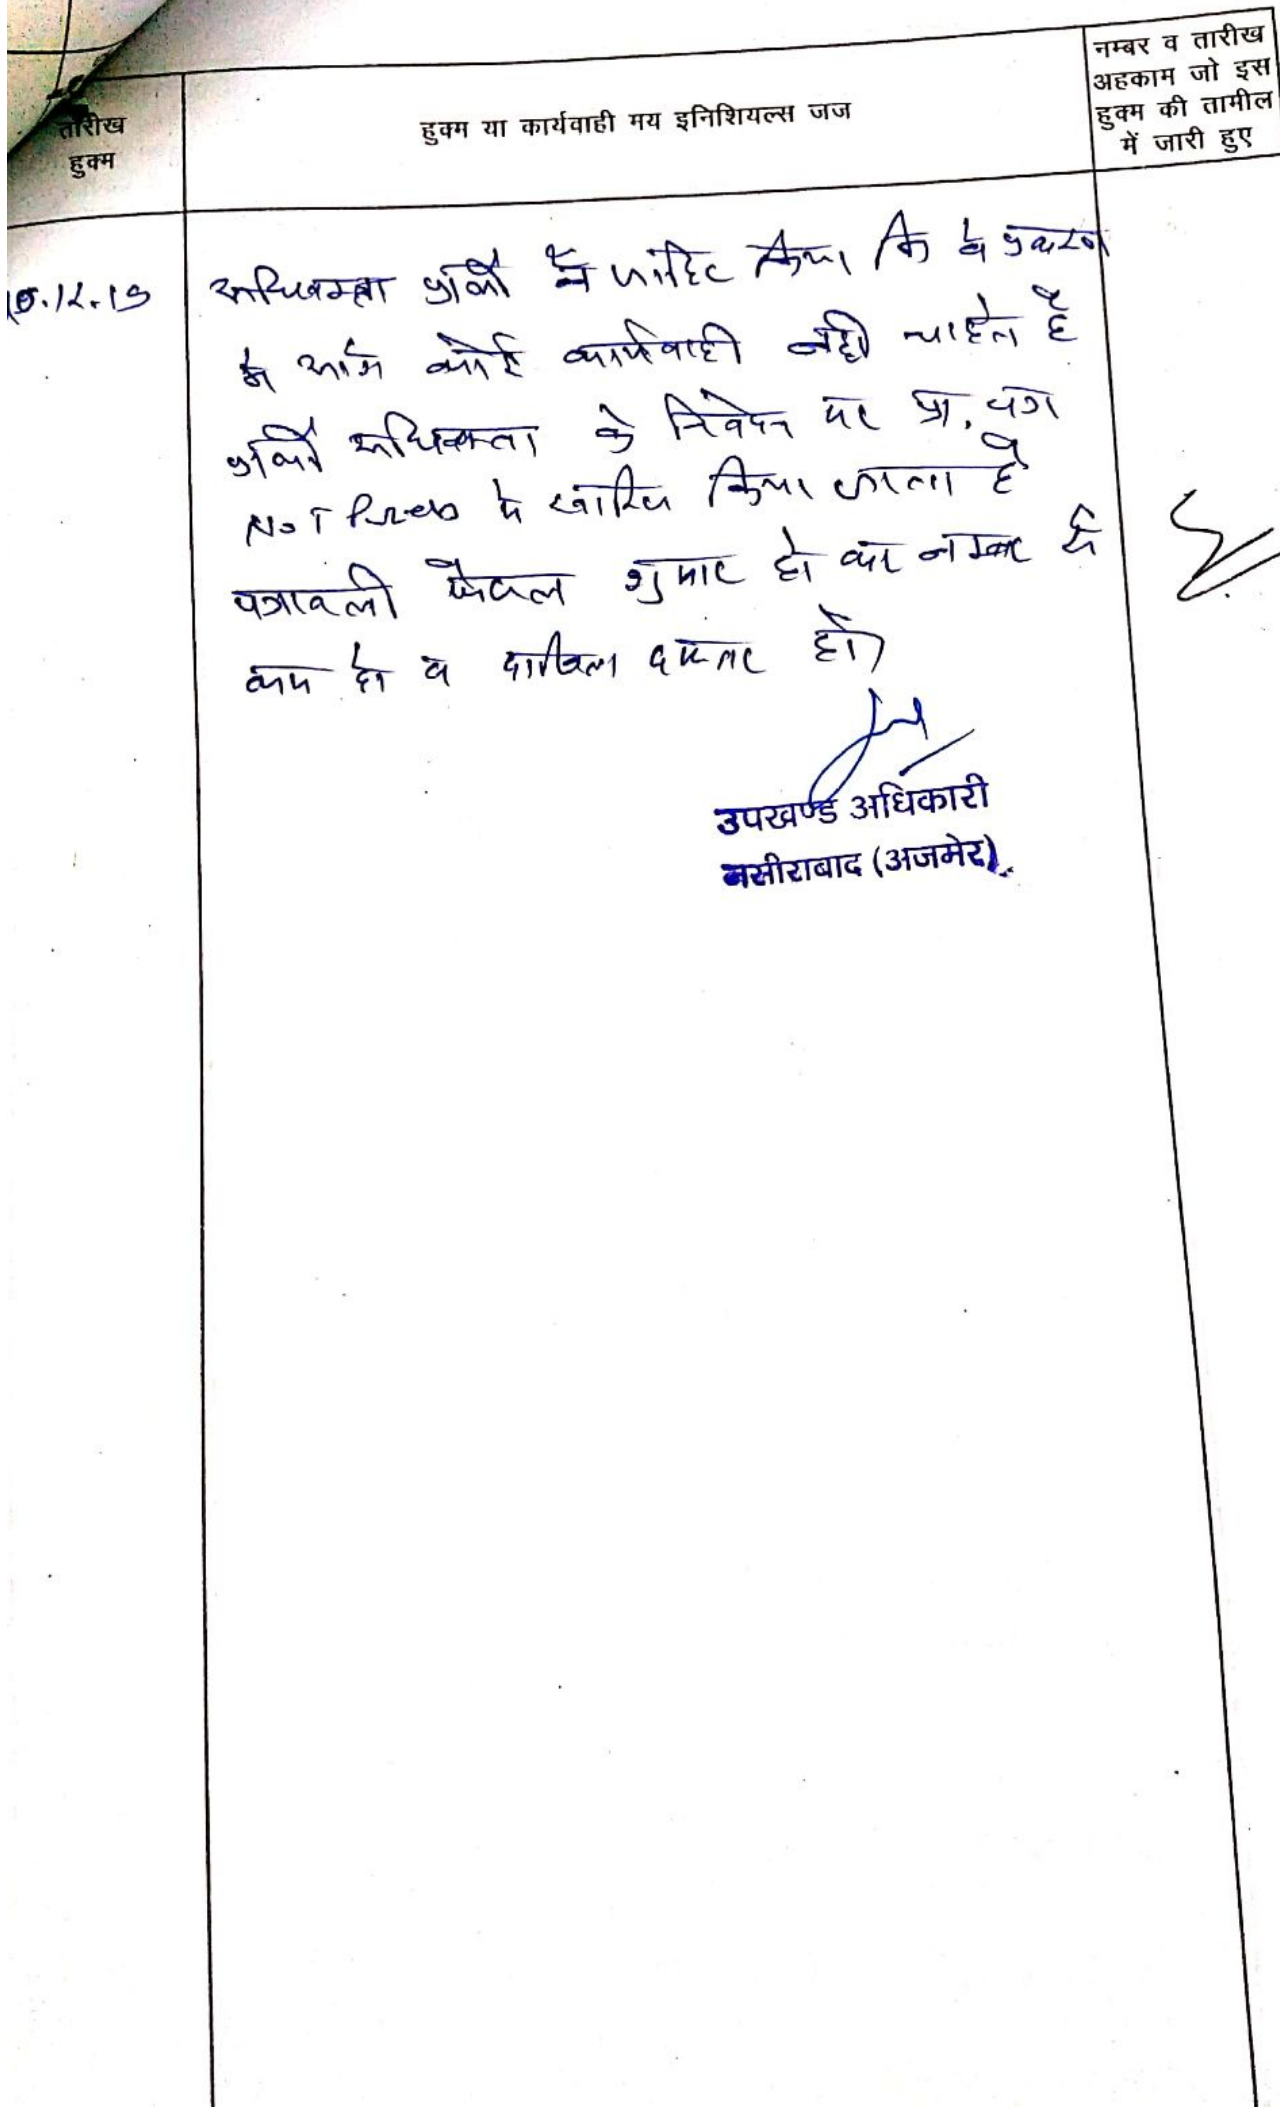 तारीख
हुक्म
हुक्म या कार्यवाही मय इनिशियल्स जज
नम्बर व तारीख
अहकाम जो इस
हुक्म की तामील
में जारी हुए
.12.19
अधिवक्ता प्रार्थी ने जाहिर किया कि वे प्रकरण
में आगे कोई कार्यवाही नही चाहते है
प्रार्थी अधिवक्ता के निवेदन पर प्रा. पत्र
Not Press में खारिज किया जाता है
पत्रावली फैसल शुमार हो कर नम्बर से
कम हो व दाखिल दफ्तर हो
उपखण्ड अधिकारी
नसीराबाद (अजमेर)